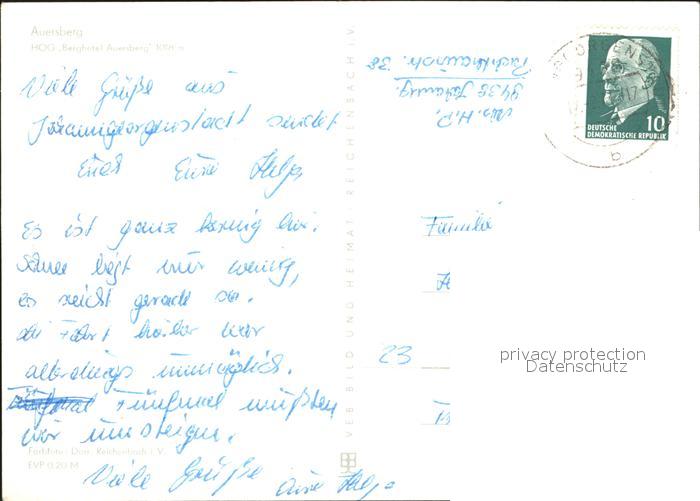 Auersberg
HOG „Berghotel Auersberg" 1018 m
Viele Grüße aus
Johanngeorgenstadt sendet
Euch Eure Helga
Es ist ganz bergig hier.
Schnee liegt nur wenig,
es reicht gerade so.
die Fahrt hierher war
allerdings unmöglich.
Fünfmal mußten
wir umsteigen.
Viele Grüße
Eure Helga
Farbfoto: Darr, Reichenbach i. V.
EVP 0,20 M
VEB BILD UND HEIMAT REICHENBACH I.V.
Abs. H. D.
9438 Johanng.
38
Familie
23
DEUTSCHE
DEMOKRATISCHE REPUBLIK
10
b
privacy protection
Datenschutz